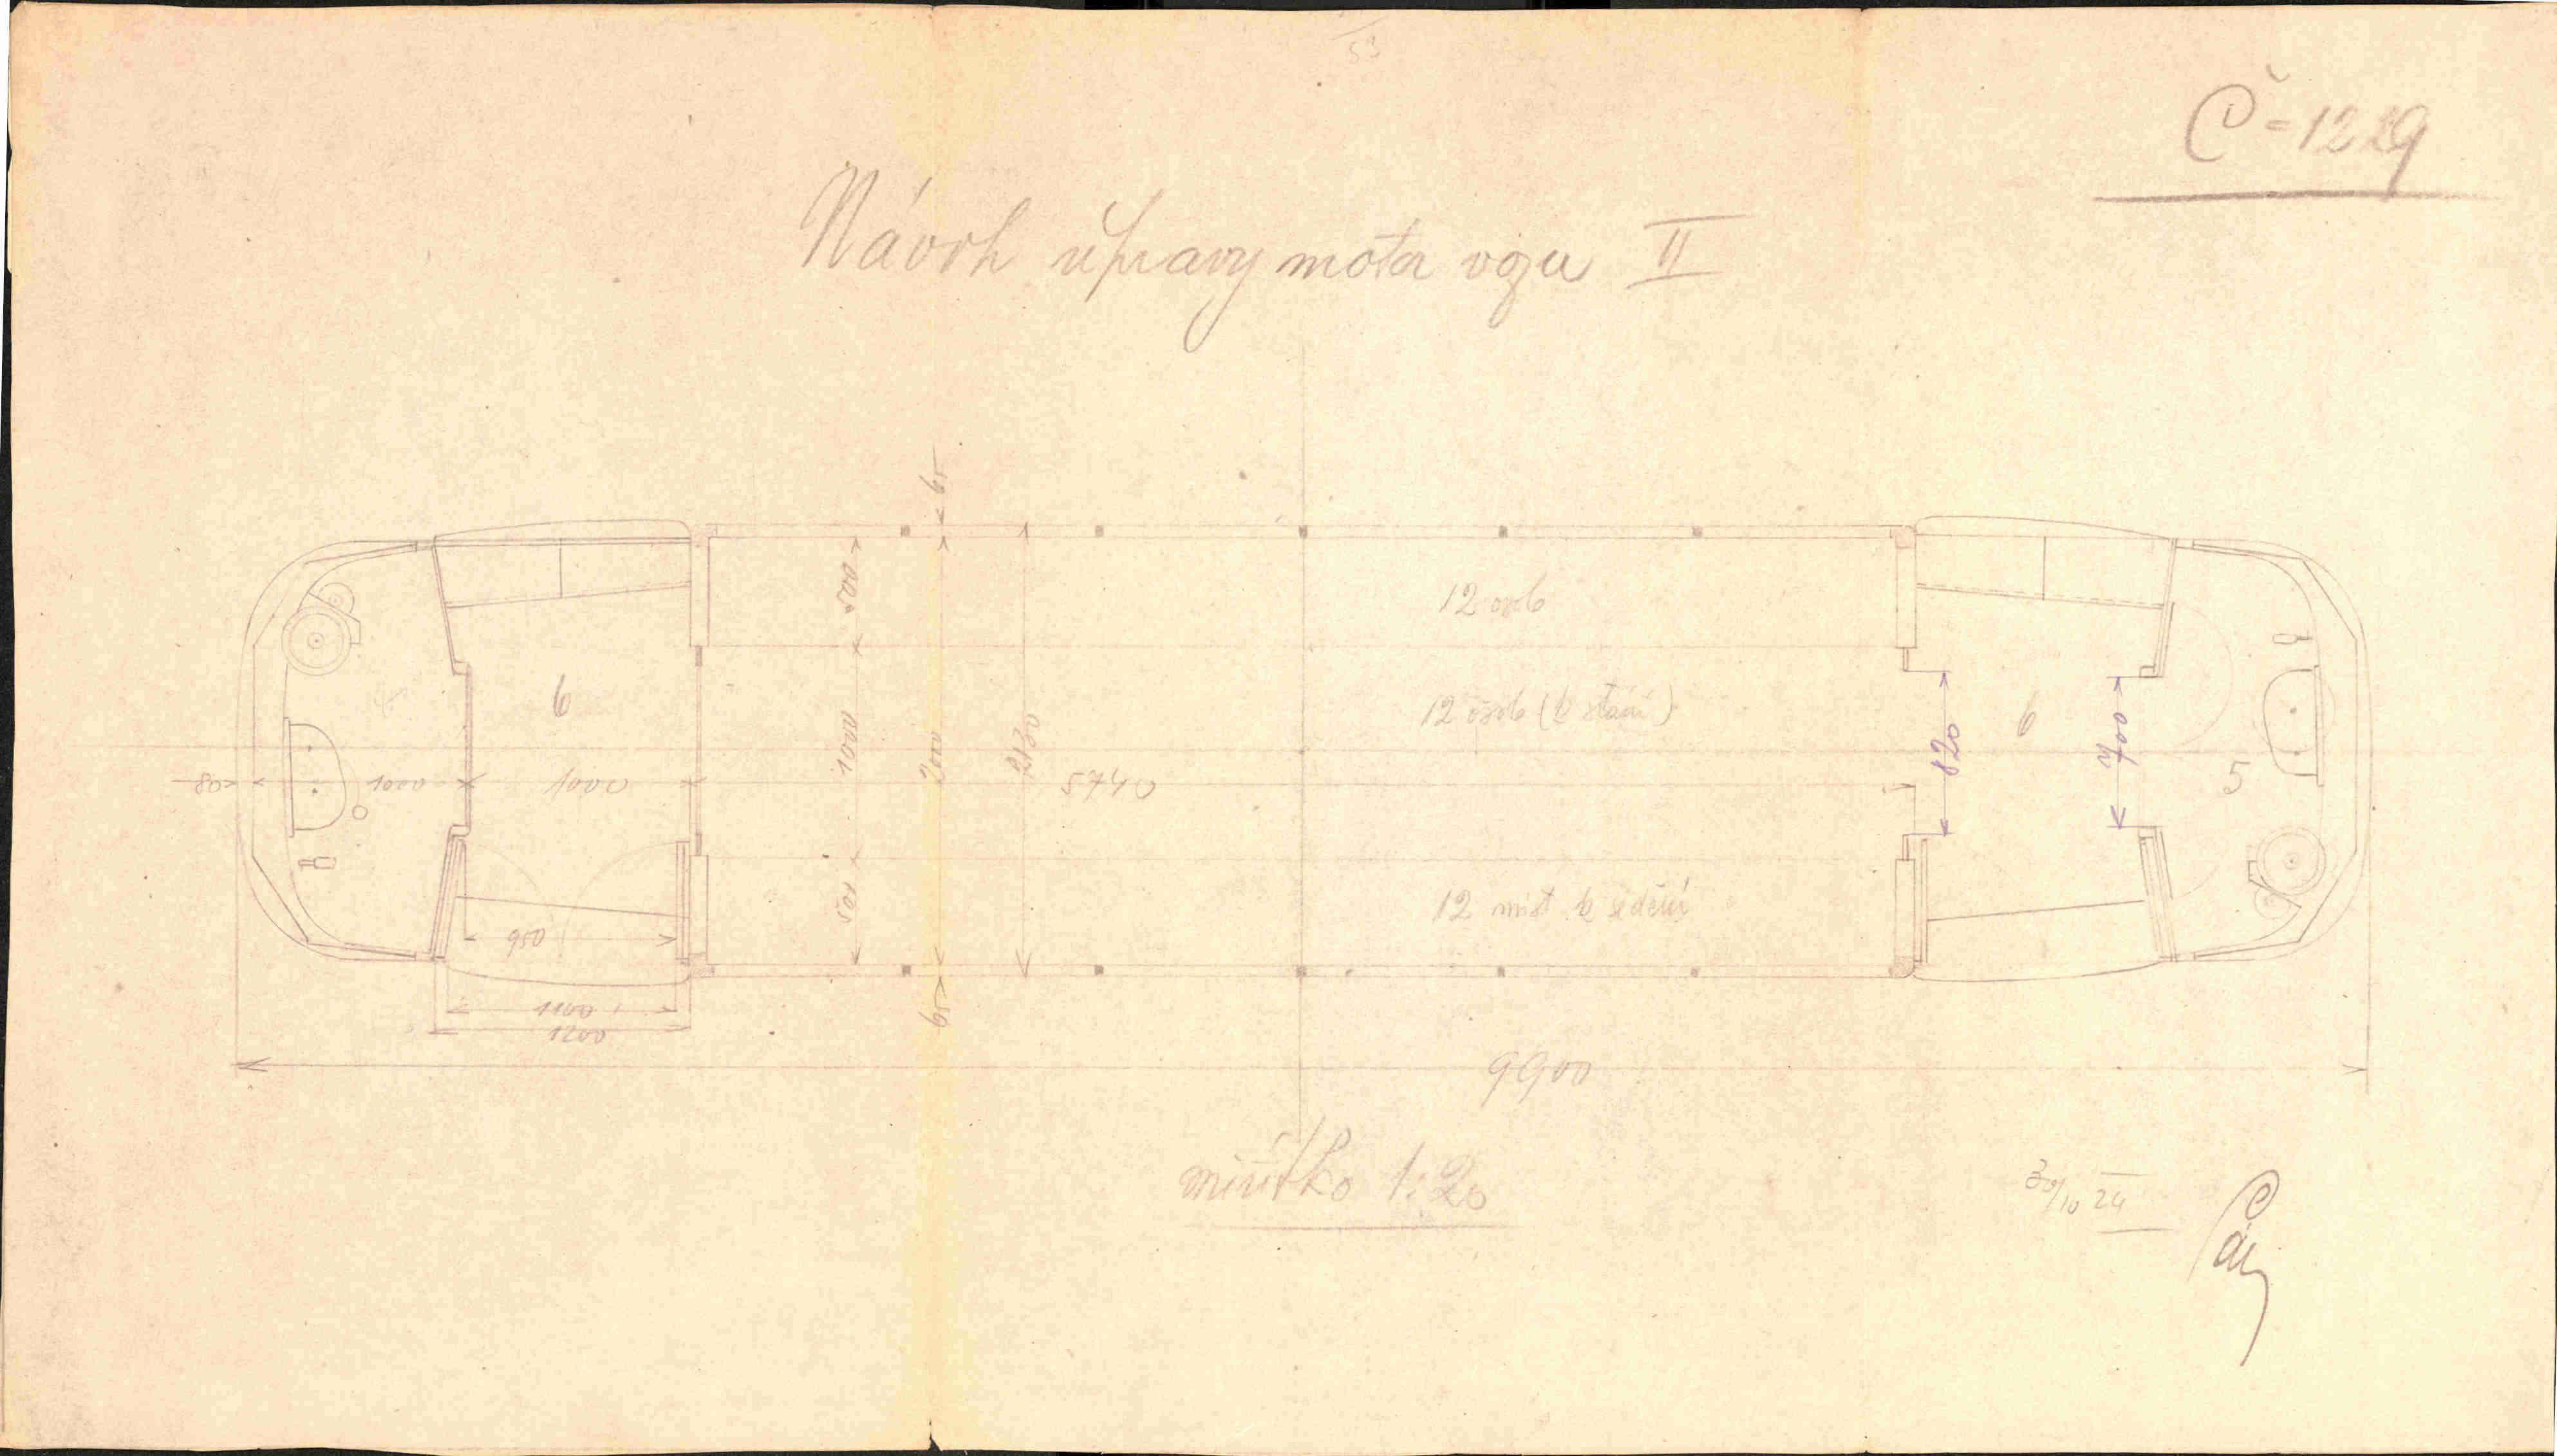 53
Č-1229
Návrh úpravy motor vozu II
65
500
12 osob
6
12 osob (k stání)
6
1000
2000
2130
820
700
80
1000
1000
5740
5
500
12 míst k sedění
950
1100
1200
65
9900
měřítko 1:20
30/10 24